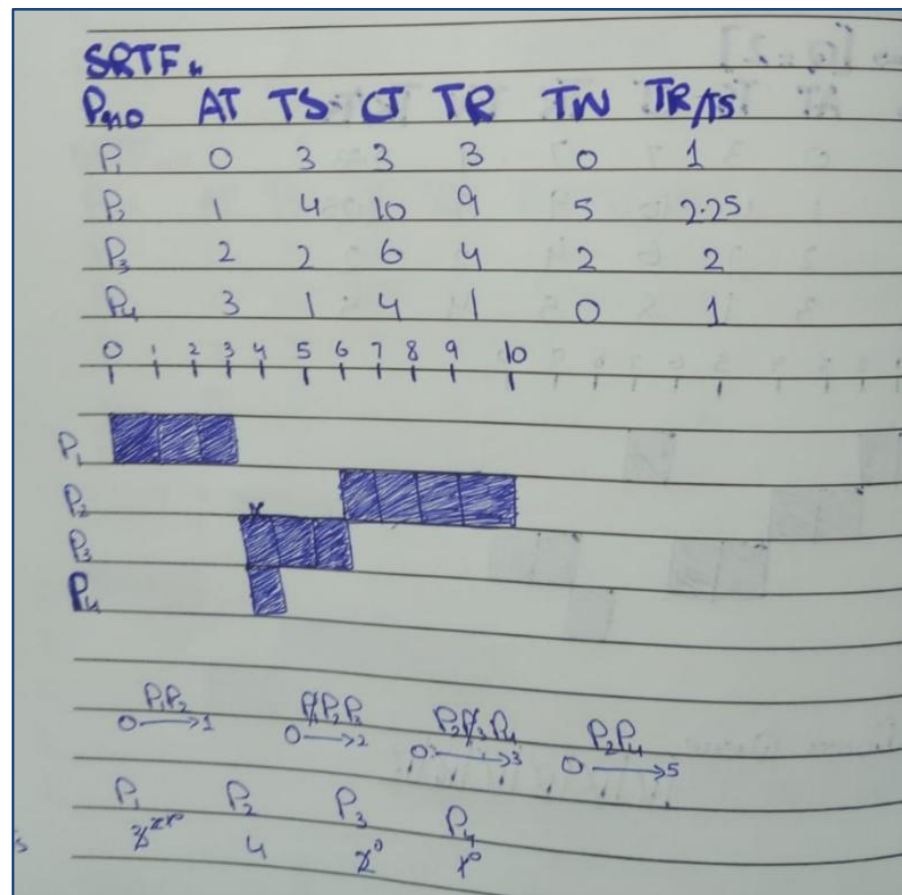 SRTF
Pno AT TS CT TR TW TR/TS
P1 0 3 3 3 0 1
P2 1 4 10 9 5 2.25
P3 2 2 6 4 2 2
P4 3 1 4 1 0 1
0 1 2 3 4 5 6 7 8 9 10
P1
P2
x
P3
P4
P1P2 P1P2P3 P2P3P4 P2P4
0→1 0→2 0→3 0→5
P1 P2 P3 P4
4